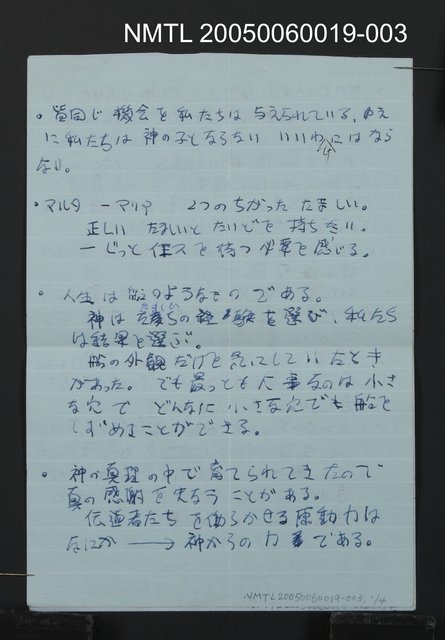 NMTL 20050060019-003
。皆同じ機会を私たちは与えられている、ゆえ
に私たちは神の子とならない いいわけにはなら
ない。
・マルタ ーマリヤ 2つのちがった たましい。
正しい たましいと たいどを 持ちたい。
ーじっと イエスを待つ必要を感じる。
。人生は船のようなもの である。
神は を選び、私たち
は結果を選ぶ。
船の外観だけを気にしていたとき
があった。でも最っとも大事なのは小さ
な穴で どんなに小さな穴でも船を
しずめることができる。
。神の真理の中で育てられてきたので
真の感謝を失なうことがある。
伝道者たちを働らかせる原動力は
なにか → 神からの力 である。
NMTL20050060019-003, 1/4